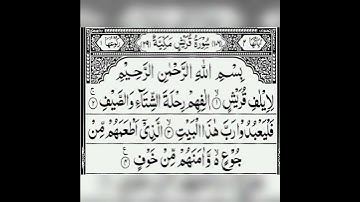 سُوْرَةُ قُرَيْشٍ مَكِّيَّةٌ
بِسْمِ اللهِ الرَّحْمٰنِ الرَّحِيْمِ
لِاِيْلٰفِ قُرَيْشٍ ۙ۱ اٖلٰفِهِمْ رِحْلَةَ الشِّتَآءِ وَالصَّيْفِ ۚ۲
فَلْيَعْبُدُوْا رَبَّ هٰذَا الْبَيْتِ ۙ۳ الَّذِيْۤ اَطْعَمَهُمْ مِّنْ
جُوْعٍ ۙ۬ وَّاٰمَنَهُمْ مِّنْ خَوْفٍ ۴